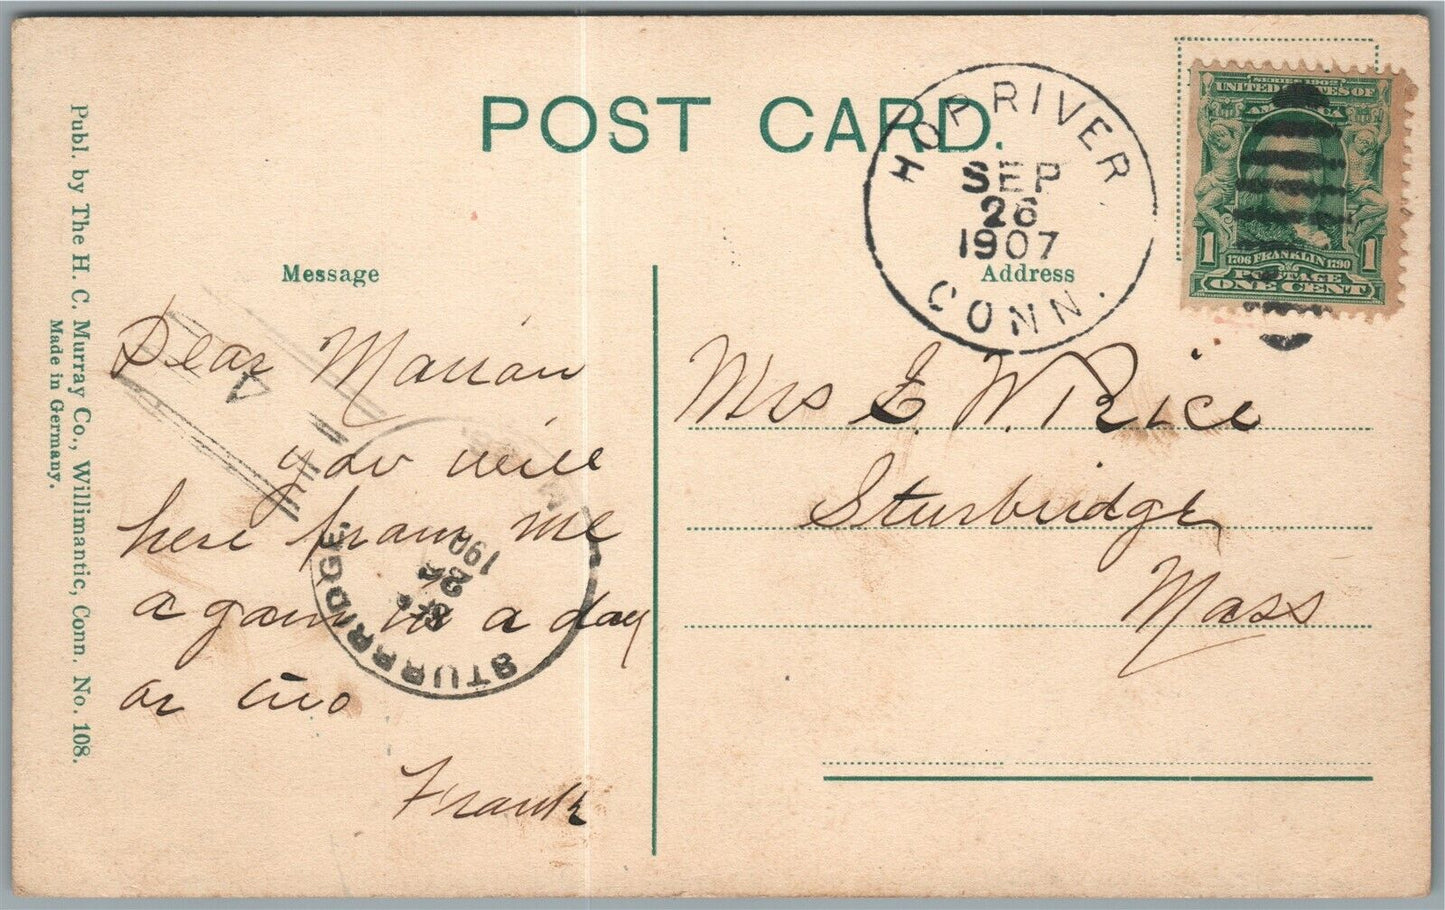 POST CARD.
HOP RIVER
SEP
26
1907
CONN.
SERIES 1902
UNITED STATES OF
AMERICA
1 1706 FRANKLIN 1790 1
POSTAGE
ONE CENT
Message
Address
Dear Marian
you will
here from me
a gain in a day
or two
Frank
Mrs E. W. Rice
Sturbridge
Mass
STURBRIDGE.
26
190
Publ. by The H. C. Murray Co., Willimantic, Conn. No. 108.
Made in Germany.